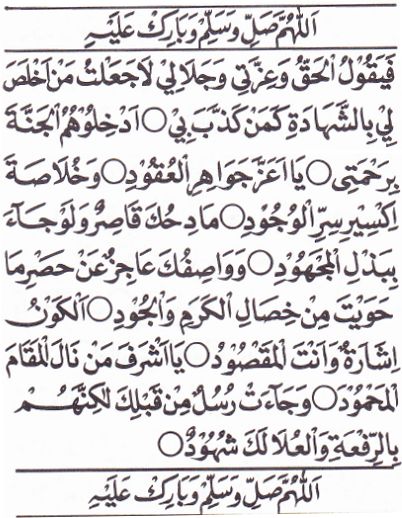 اَللّٰهُمَّ صَلِّ وَسَلِّمْ وَبَارِكْ عَلَيْهِ
فَيَقُوْلُ الْحَقُّ وَعِزَّتِيْ وَجَلَالِيْ لَاجَعَلْتُ مَنْ اَخْلَصَ
لِيْ بِالشَّهَادَةِ كَمَنْ كَذَّبَ بِيْ ○ اَدْخِلُوْهُمُ الْجَنَّةَ
بِرَحْمَتِيْ ○ يَا اَعَزَّ جَوَاهِرِ الْعُقُوْدِ ○ وَخُلَاصَةَ
اِكْسِيْرِ سِرِّ الْوُجُوْدِ ○ مَادِحُكَ قَاصِرٌ وَلَوْ جَآءَ
بِبَذْلِ الْمَجْهُوْدِ ○ وَوَاصِفُكَ عَاجِزٌ عَنْ حَصْرِ مَا
حَوَيْتَ مِنْ خِصَالِ الْكَرَمِ وَالْجُوْدِ ○ اَلْكَوْنُ
اِشَارَةٌ وَاَنْتَ الْمَقْصُوْدُ ○ يَا اَشْرَفَ مَنْ نَالَ الْمَقَامَ
الْمَحْمُوْدَ ○ وَجَآءَتْ رُسُلٌ مِنْ قَبْلِكَ لٰكِنَّهُمْ
بِالرِّفْعَةِ وَالْعُلَا لَكَ شُهُوْدٌ ○
اَللّٰهُمَّ صَلِّ وَسَلِّمْ وَبَارِكْ عَلَيْهِ